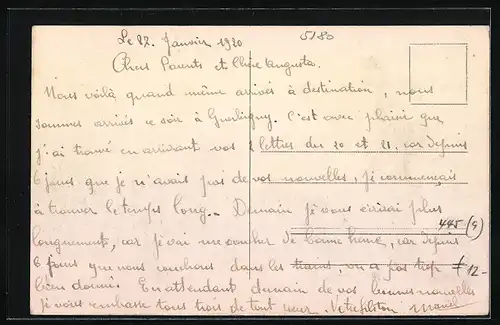 Le 27. Janvier 1920
5180
Chers Parents et Chère Augusta.
Nous voilà quand même arrivés à destination, nous
sommes arrivés ce soir à . C'est avec plaisir que
j'ai trouvé en arrivant vos 2 lettres du 20 et 21. car depuis
6 jours que je n'avais pas de vos nouvelles, je commençais
à trouver le temps long.. Demain je vous écrirai plus
445 (9)
longuement, car je vai me coucher de bonne heure, car depuis
6 jours que nous couchons dans les trains, on a pas trop
12-
bien dormi. En attendant demain de vos bonnes nouvelles
je vous embrasse tous trois de tout cœur. Votre fiston Marcel